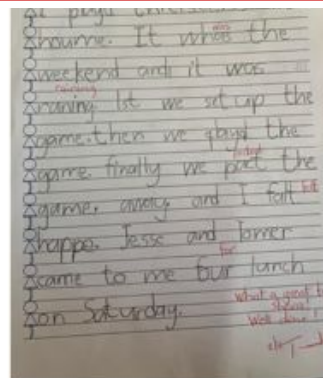 I playd
houme. It whas the
was
weekend and it was
raining
raning 1st we set up the
game. then we playd the
packed
game. finally we pact the
game. away and I falt felt
happe. Jesse and
for
came to me four lunch
on Saturday.
What a great
Well done!